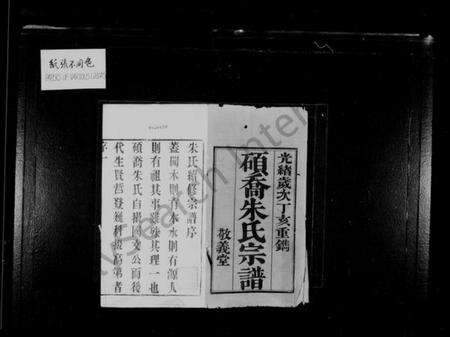 紙張不同色
PAPERS OF VARIOUS COLORS
光緒歲次丁亥重鐫
碩喬朱氏宗譜
敬義堂
朱氏續修宗譜序
蓋聞木則有本水則有源人
則有祖其事 其理一也
碩喬朱氏自 國文公而後
代生賢哲登雍科拔高第者
序一